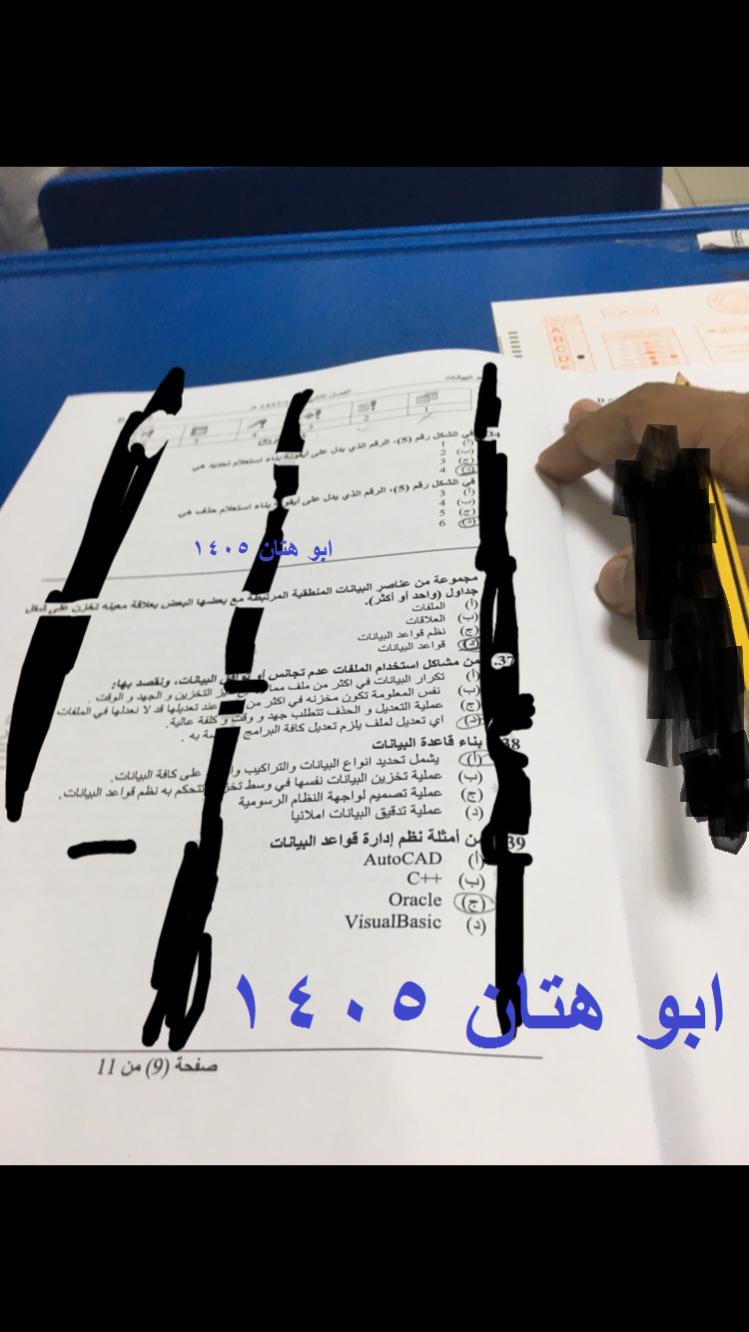 البيانات
1 2 3 4 5
.34 في الشكل رقم (5)، الرقم الذي يدل على ايقونة بناء استعلام تحديد هي
(أ) 1
(ب) 2
(ج) 3
(د) 4
في الشكل رقم (5)، الرقم الذي يدل على ايقونة بناء استعلام حذف هي
(أ) 3
(ب) 4
(ج) 5
(د) 6
ابو هتان ١٤٠٥
مجموعة من عناصر البيانات المنطقية المرتبطة مع بعضها البعض بعلاقة معينه تخزن على شكل
جداول (واحد أو أكثر).
(أ) الملفات
(ب) العلاقات
(ج) نظم قواعد البيانات
(د) قواعد البيانات
.37 من مشاكل استخدام الملفات عدم تجانس أو توافق البيانات، ونقصد بها:
(أ) تكرار البيانات في اكثر من ملف مما التخزين و الجهد و الوقت .
(ب) نفس المعلومة تكون مخزنه في اكثر من عند تعديلها قد لا نعدلها في الملفات
(ج) عملية التعديل و الحذف تتطلب جهد و وقت و كلفة عالية.
(د) اي تعديل لملف يلزم تعديل كافة البرامج به .
38 بناء قاعدة البيانات
(أ) يشمل تحديد انواع البيانات والتراكيب على كافة البيانات.
(ب) عملية تخزين البيانات نفسها في وسط تتحكم به نظم قواعد البيانات.
(ج) عملية تصميم لواجهة النظام الرسومية
(د) عملية تدقيق البيانات املائيا
39 من أمثلة نظم إدارة قواعد البيانات
(أ) AutoCAD
(ب) C++
(ج) Oracle
(د) VisualBasic
ابو هتان ١٤٠٥
صفحة (9) من 11